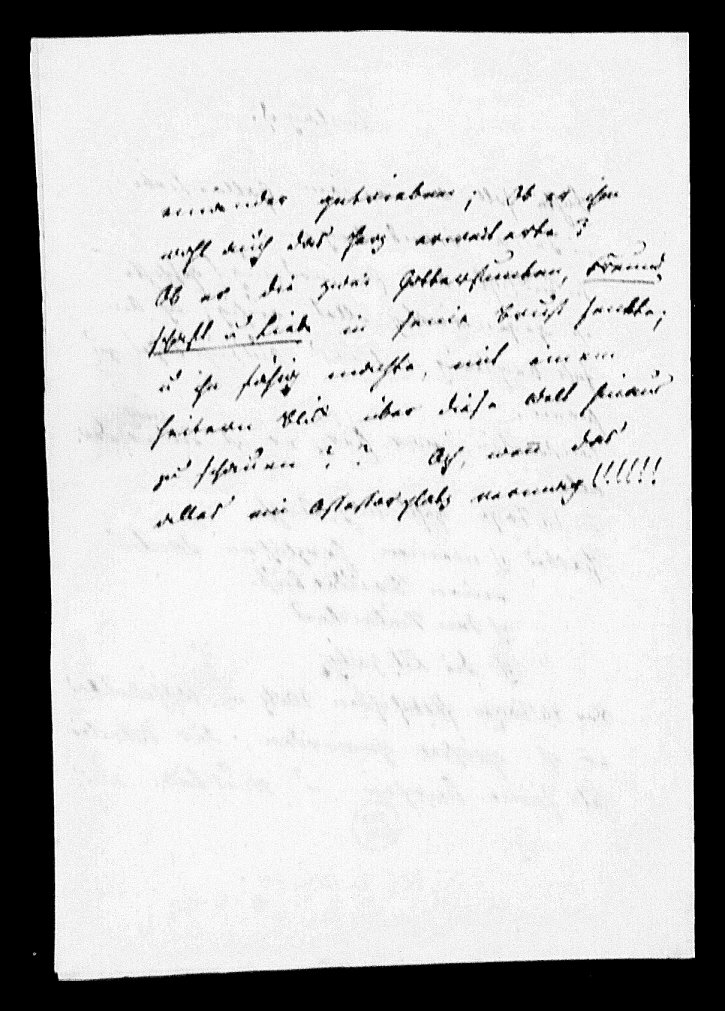 einander getrieben; Ob er ihm
wohl auch das Herz erweiterte?
Ob er die zwei Götterfunken, Freund
schaft u. Liebe in seine Brust senkte;
u ihn fähig machte, mit einem
heitern Blick über diese Welt hinaus
zu schauen? ? Ach, wenn das
alles ein vermag!!!!!!